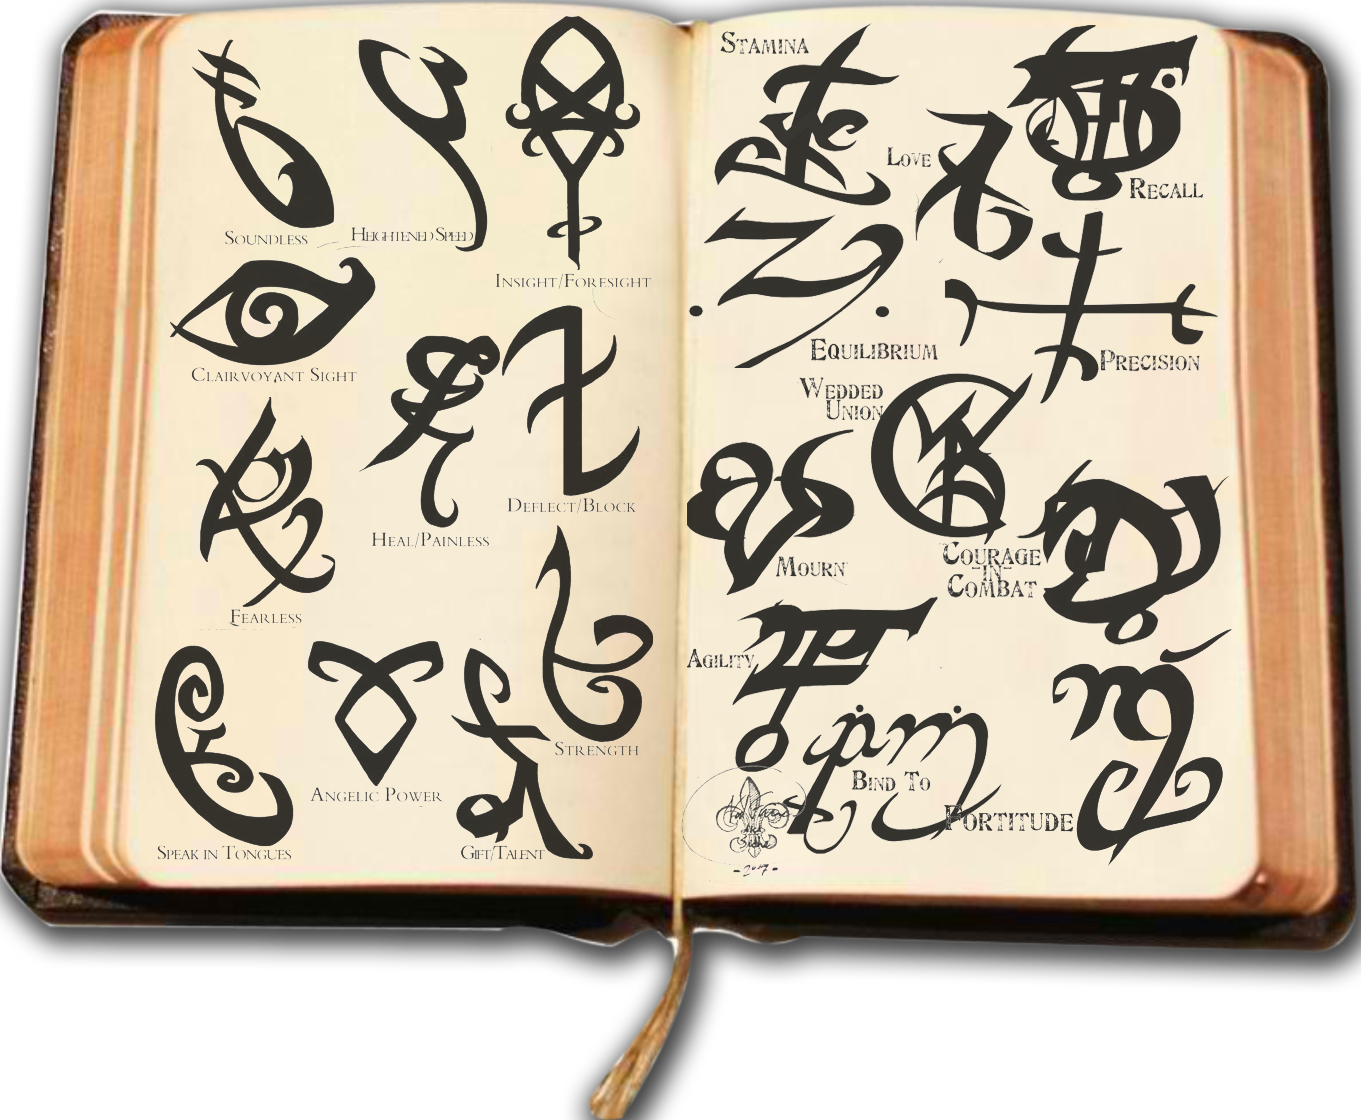 Soundless
Heightened Speed
Insight/Foresight
Clairvoyant Sight
Heal/Painless
Deflect/Block
Fearless
Speak in Tongues
Angelic Power
Gift/Talent
Strength
Stamina
Love
Recall
Equilibrium
Precision
Wedded
Union
Mourn
Courage
-in-
Combat
Agility
Bind To
Fortitude